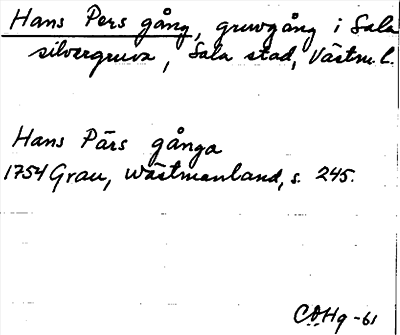 Hans Pers gång, gruvgång i Sala
silvergruva, Sala stad, Västm. l.
Hans Pärs gånga
1754 Grau, Wästmanland, s. 245.
C.O.Hq -61